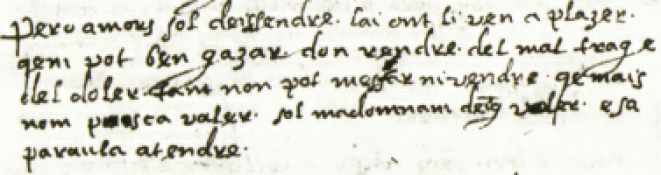 Pero amors sol deissendre· lai ont li ven a plazer·
qem pot ben gazar· don rendre· del mal trag e
del doler· tant non pot messar ni vendre· qe mais
nom puosca valer· sol madomnam deg voler· e sa
paraula atendre·